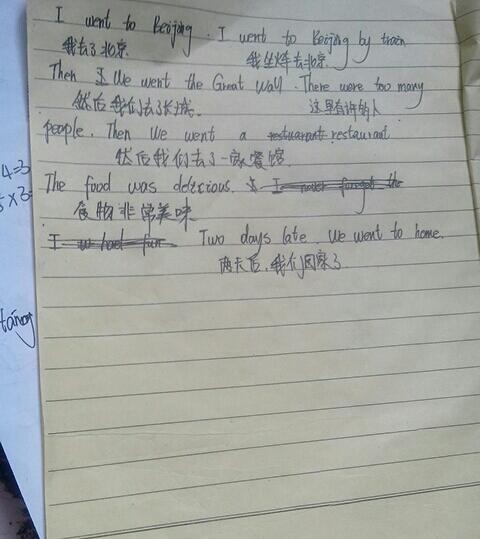 I went to Beijing. I went to Beijing by train
我去了北京. 我坐火车去北京.
Then I We went the Great Wall. There were too many
然后我们去了长城. 这里有许多人
people. Then We went a restuarant restaurant
然后我们去了一家餐馆
The food was delicious. I never forget the
食物非常美味
I w had fun Two days late. We went to home.
两天后.我们回家了
4=3
tang